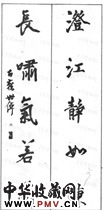 澄江靜如
長嘯氣若
中华收藏网
WWW.PMV.CN